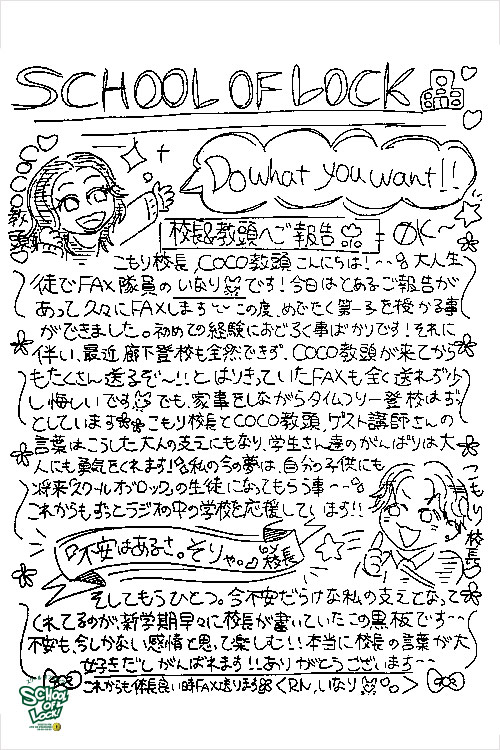 SCHOOL OF LOCK
Do what you want!!
教頭
校長&教頭へご報告
OK〜
こもり校長、COCO教頭こんにちは!〜〜 大人生
徒でFAX隊員のいなりです!今日はとあるご報告が
あって久々にFAXします〜〜この度、めでたく第一子を授かる事
ができました。初めての経験におどろく事ばかりです!それに
伴い、最近廊下登校も全然できず、COCO教頭が来てから
もたくさん送るぞ〜!!とはりきっていたFAXも全く送れず少
し悔しいです でも、家事をしながらタイムフリー登校はず
としています こもり校長とCOCO教頭、ゲスト講師さんの
言葉はこうした大人の支えにもなり、学生さん達のがんばりは大
人にも勇気をくれます!私の今の夢は、自分の子供にも
将来『スクールオブロック』の生徒になってもらう事〜〜
これからもずっとラジオの中の学校を応援しています!!
こもり校長
『不安はあるさ。そりゃ。』by校長
そしてもうひとつ。今不安だらけな私の支えとなって
くれてるのが、新学期早々に校長が書いていたこの黒板です〜〜
不安も、今しかない感情と思って楽しむ!!本当に校長の言葉が大
好きだしがんばれます!!ありがとうございます〜〜
これからも体長良い時FAX送ります <RN,いなり>
SCHOOL OF LOCK!